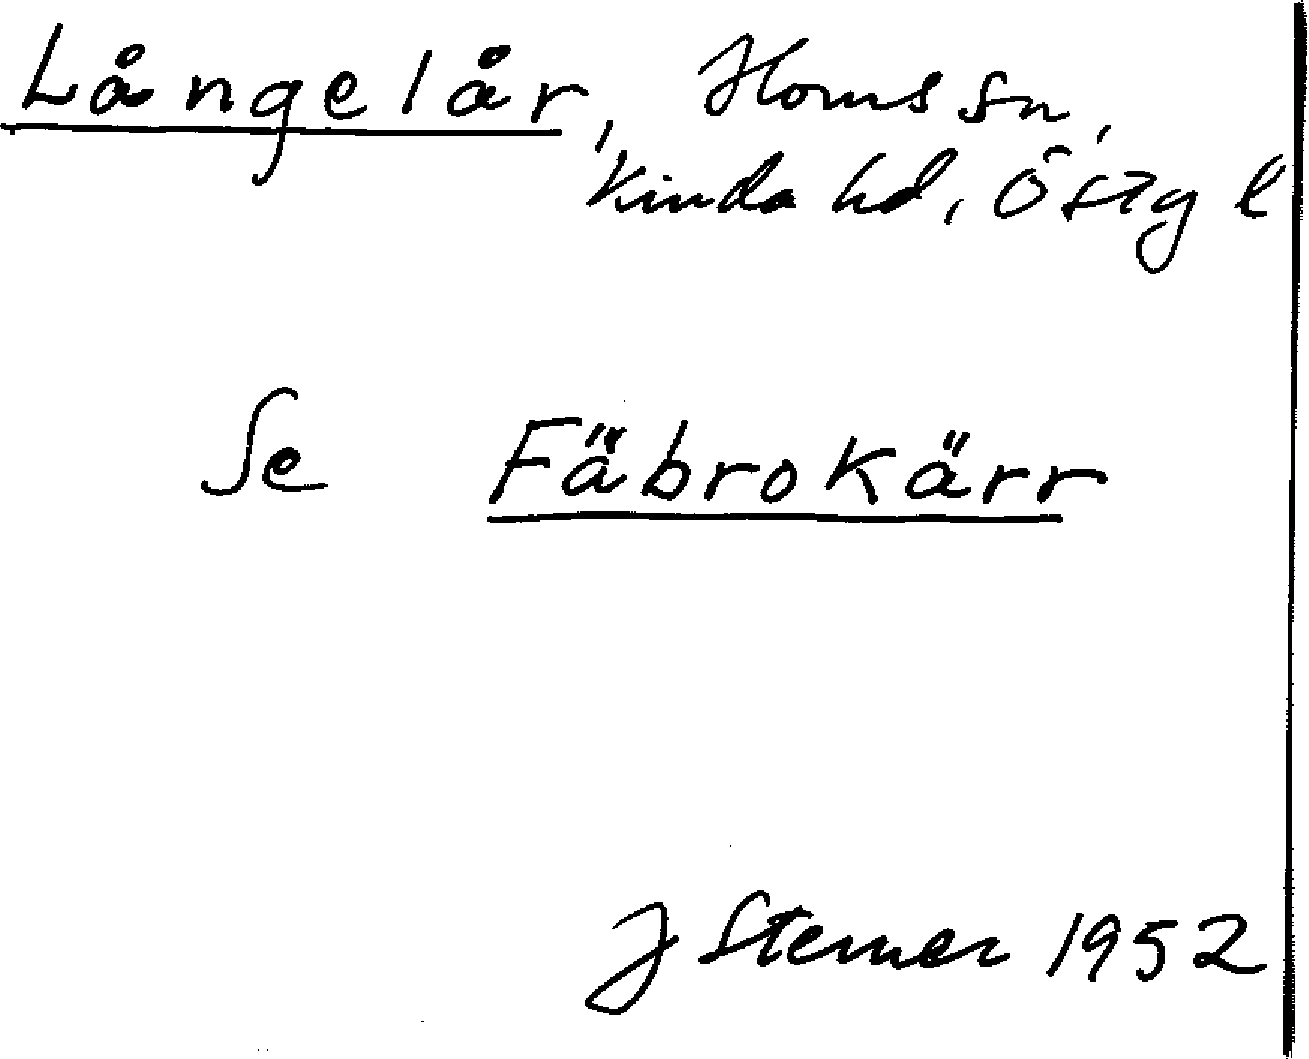 Långelår, Horns sn,
Kinda hd, Östg l
Se Fäbrokärr
J Sterner 1952